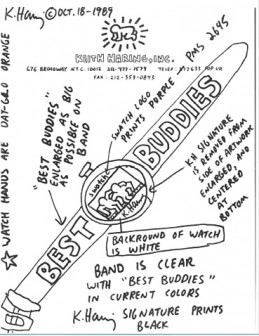 K. Haring © OCT. 18-1989
KEITH HARING, INC.
676 BROADWAY N.Y.C. 10012
FAX: 212-
PMS 2645
☆ WATCH HANDS ARE DAY-GLO ORANGE
"BEST BUDDIES"
ENLARGED AS BIG
AS POSSIBLE ON
BAND
WATCH LOGO
PRINTS PURPLE
BEST BUDDIES
K. Haring
KH SIGNATURE
IS REMOVED FROM
SIDE OF ARTWORK
ENLARGED, AND
CENTERED
BOTTOM
BACKROUND OF WATCH
IS WHITE
BAND IS CLEAR
WITH "BEST BUDDIES"
IN CURRENT COLORS
K. Haring SIGNATURE PRINTS
BLACK